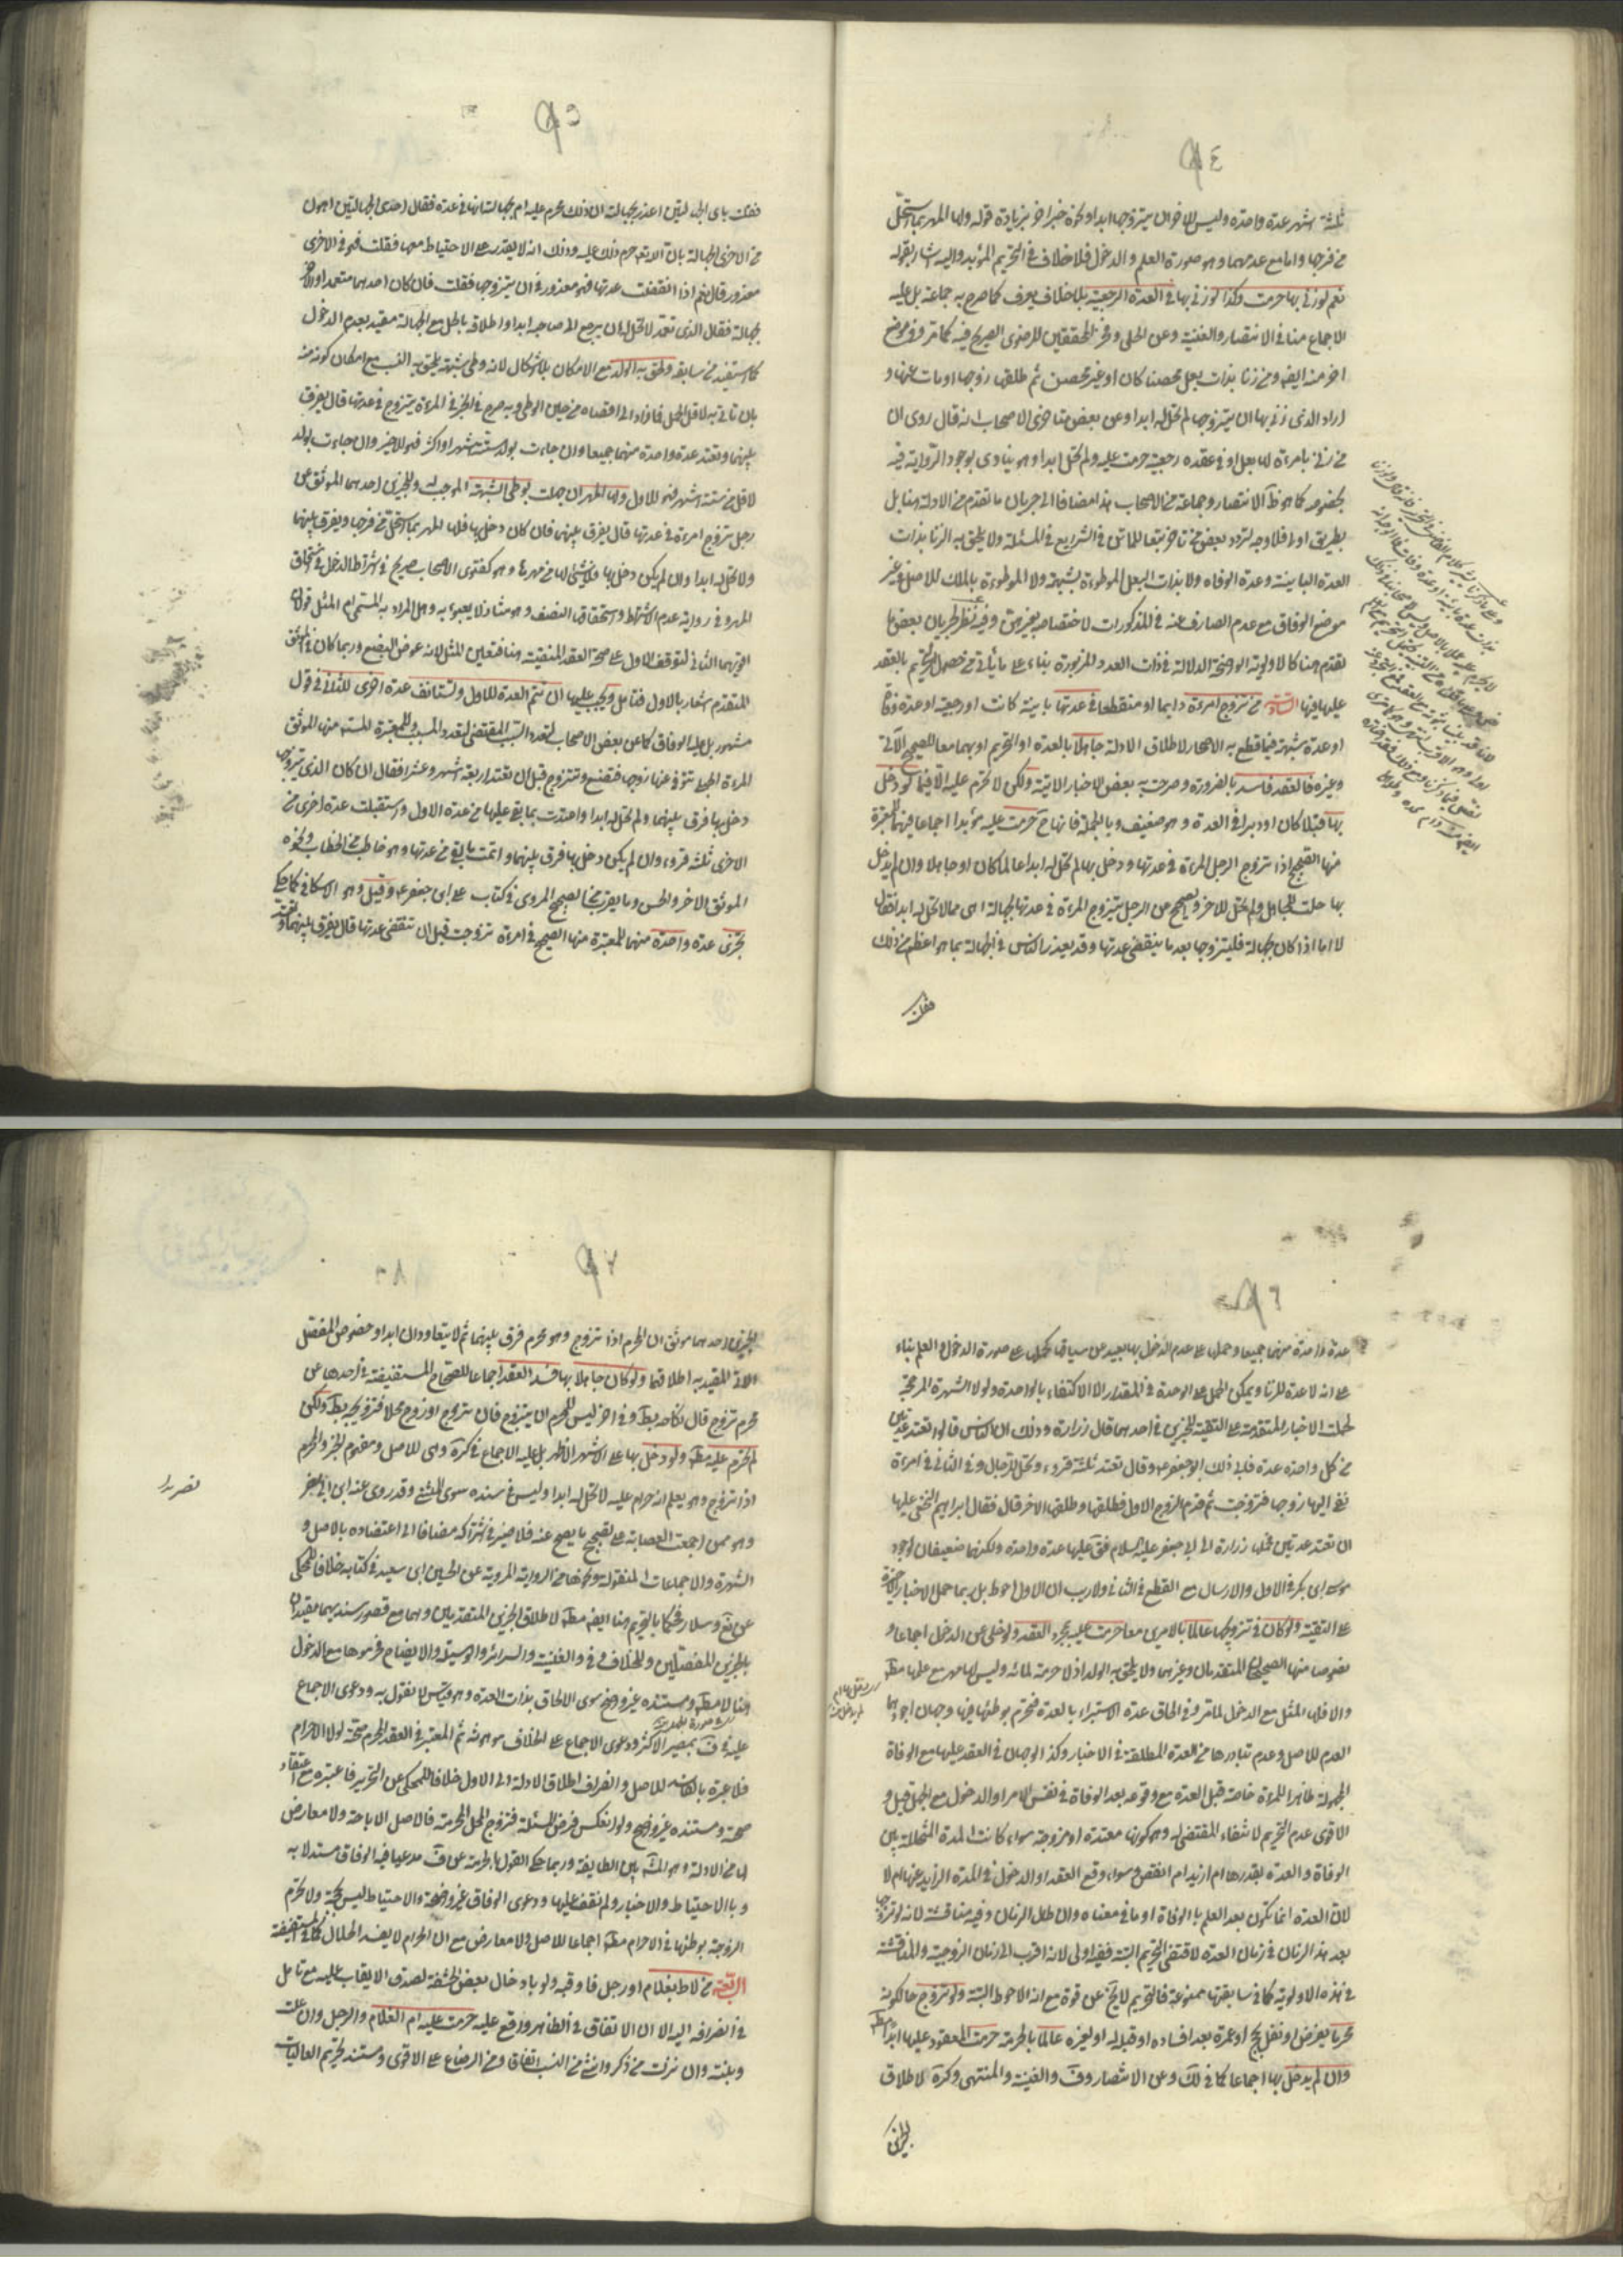 ٩٤
ثلثة اشهر عدة واحدة وليس للاخران يتزوجها ابدا ونحوه خبر اخر بزيادة قوله ولها المهر بما استحل
من فرجها واما مع عدمهما وهو صورة العلم والدخول فلا خلاف في التحريم المؤبد واليه اشار بقوله
نعم لو زنى بها حرمت وكذا لو زنى بها في العدة الرجعية بلا خلاف يعرف كما صرح به جماعة بل عليه
الاجماع منا في الانتصار والغنية وعن الحلى وفخر المحققين للرضوى الصريح فيه كما مر وفى موضع
اخر منه ايضا ومن زنا بذات بعل محصنا كان او غير محصن ثم طلقها زوجها او مات عنها و
اراد الذى زنى بها ان يتزوجها لم تحل له ابدا وعن بعض متاخرى الاصحاب انه قال روى ان
من زنى بامرءة لها بعل او في عقده رجعية حرمت عليه ولم تحل ابدا وهو ينادى بوجود الرواية فيه
بخصوصه كما هو ظ الانتصار وجماعة من الاصحاب هذا مضافا الى جريان ما تقدم من الادلة هنا بل
بطريق اولى فلا وجه لتردد بعض من تاخر تبعا للماتن في الشرايع في المسئلة ولا يلحق به الزنا بذات
العدة البائينة وعدة الوفاه ولا بذات البعل الموطوءة بشبهة ولا الموطوءة بالملك للاصل في غير
موضع الوفاق مع عدم الصارف عنه في المذكورات لاختصاصه بغيرهن وفيه نظر لجريان بعض ما
تقدم هنا كالاولوية الواضحة الدلالة في ذات العدد المزبورة بناء على ما ياتى من حصول التحريم بالعقد
عليها فيها الثالثة من تزوج امرءة دايما او منقطعا في عدتها باينة كانت او رجعية او عدة وفاة
او عدة شبهة فيما قطع به الاصحاب لاطلاق الادلة جاهلا بالعدة او التحريم او بهما معا للصحيح الآتى
وغيره فالعقد فاسد بالضرورة وصرحت به بعض الاخبار الاتية ولكن لا تحرم عليه الا فيما لو دخل
بها قبلا كان او دبرا في العدة وهو ضعيف وبالجملة فانها ح حرمت عليه مؤبدا اجماعا فيهما للمعتبرة
منها الصحيح اذا تزوج الرجل المرءة في عدتها ودخل بها لم تحل له ابدا عالما كان او جاهلا وان لم يدخل
بها حلت للجاهل ولم تحل للاخر والصحيح عن الرجل يتزوج المرءة في عدتها بجهالة اهى ممن لا تحل له ابدا فقال
لا اما اذا كان بجهالة فليتزوجها بعد ما ينقضى عدتها وقد يعذر الناس في الجهالة بما هو اعظم من ذلك
فقلت
٩٥
فقلت باى الجهالتين اعذر بجهالته ان ذلك محرم عليه ام بجهالته انها في عدة فقال احدى الجهالتين اهون
من الاخرى الجهالة بان الله تعالى حرم ذلك عليه وذلك انه لا يقدر على الاحتياط معها فقلت فهو في الاخرى
معذور قال نعم اذا انقضت عدتها فهو معذور في ان يتزوجها فقلت فان كان احدهما متعمدا والاخر
بجهالة فقال الذى تعمد لا تحل له ان يرجع الى صاحبه ابدا واطلاقه بالحل مع الجهالة مقيد بعدم الدخول
كما استفيد من سابقه ولحق به الولد مع الامكان بلا اشكال لانه وطى شبهة يلحق به النسب مع امكان كونه منه
بان تاتى به لاقل الحمل فما زاد الى اقصاه من حين الوطى وبه صرح في الخبر في المرءة يتزوج في عدتها قال يفرق
بينهما وتعتد عدة واحدة منهما جميعا وان جاءت بولد لستة اشهر او اكثر فهو للاخير وان جاءت بولد
لاقل من ستة اشهر فهو للاول ولها المهر ان جهلت بوطى الشبهة الموجب له والخبرين احدهما الموثق عن
رجل تزوج امرءة في عدتها قال يفرق بينهما فان كان دخل بها فلها المهر بما استحل من فرجها ويفرق بينهما
ولا تحل له ابدا وان لم يكن دخل بها فلا شئ لها من مهرها وهو كفتوى الاصحاب صريح في اشتراط الدخول في استحقاق
المهر وفى رواية عدم الاشتراط واستحقاقها النصف وهو شاذ لا يعبأ به وهل المراد به المسمى ام المثل قولان
اقربهما الثانى لتوقف الاول على صحة العقد المنفية هنا فتعين المثل لانه عوض البضع وربما كان في الموثق
المتقدم اشعار بالاول فتامل ويجب عليها ان تتم العدة للاول وتستانف عدة اخرى للثانى في قول
مشهور بل عليه الوفاق كما عن بعض الاصحاب لتعدد السبب المقتضى لتعدد المسبب وللمعتبرة المستفيضة منها الموثق
المرءة الحبلى تتوفى عنها زوجها فتضع وتتزوج قبل ان تعتد اربعة اشهر وعشرا فقال ان كان الذى يتزوجها
دخل بها فرق بينهما ولم تحل له ابدا واعتدت بما بقى عليها من عدة الاول واستقبلت عدة اخرى من
الاخر ثلثة قروء وان لم يكن دخل بها فرق بينهما واتمت ما بقى من عدتها وهو خاطب من الخطاب ونحوه
الموثق الاخر والحسن وما يقرب منها الصحيح المروى في كتاب على ابن جعفر ع وقيل وهو الاسكافى كما حكى
تجزى عدة واحدة منهما للمعتبرة منها الصحيح في امرءة تزوجت قبل ان تنقضى عدتها قال يفرق بينهما وتعتد
٩٦
عدة واحدة منهما جميعا وحمله على عدم الدخول بها بعيد عن سياقه كحمله على صورة الدخول والعلم بناء
على انه لا عدة للزنا ويمكن الحمل على الوحدة في المقدار الا الاكتفاء بالواحدة ولولا الشهرة المرجحة
لحملت الاخبار المتقدمة على التقية للخبرين في احدهما قال زرارة وذلك ان الناس قالوا تعتد عدتين
من كل واحدة عدة فابى ذلك ابو جعفر ع وقال تعتد ثلثة قروء وتحل للرجال وفى الثانى في امرءة
نعى اليها زوجها فتزوجت ثم قدم الزوج الاول فطلقها وطلقها الاخر قال فقال ابراهيم النخعى عليها
ان تعتد عدتين فحملها زرارة الى ابى جعفر عليه السلام فقال عليها عدة واحدة ولكنهما ضعيفان لوجود
موسى ابن بكر في الاول والارسال مع القطع في الثانى ولا ريب ان الاول احوط بل ربما حمل الاخبار الاخيرة
على التقية ولو كان في تزويجها عالما بالامرين معا حرمت عليه بمجرد العقد ولو خلى عن الدخول اجماعا و
نصوصا منها الصحيحان المتقدمان وغيرهما ولا يلحق به الولد اذ لا حرمة لمائه وليس لها مهر مع علمها مط
والا فلها المثل مع الدخول لما مر وفى الحاق عدة الاستبراء بالعدة فتحرم بوطئها فيها وجهان اجودهما
العدم للاصل وعدم تبادرها من العدة المطلقة في الاخبار وكذا الوجهان في العقد عليها مع الوفاة
المجهولة ظاهرا للمرءة خاصة قبل العدة مع وقوعه بعد الوفاة في نفس الامر او الدخول مع الجهل قيل و
الاقوى عدم التحريم لانتفاء المقتضى له وهو كونها معتدة او مزوجة سواء كانت المدة المتخللة بين
الوفاة والعدة بقدرها ام ازيد ام انقص وسواء وقع العقد او الدخول في المدة الزايدة عنها ام لا
لان العدة انما تكون بعد العلم بالوفاة او ما في معناه وان طال الزمان وفيه مناقشة لانه لو تزوجها
بعد هذا الزمان في زمان العدة لاقتضى التحريم البتة ففيه اولى لانه اقرب الى زمان الزوجية والمناقشة
في هذه الاولوية كما في سابقتها ممنوعة فالتحريم لا يخ عن قوة مع انه الاحوط البتة ولو تزوج حالكونه
محرما بفرض او نفل بحج او عمرة بعد افساده او قبله له او لغيره عالما بالحرمة حرمت المعقود عليها ابدا مط
وان لم يدخل بها اجماعا كما في لك وعن الانتصار وف والغنية والمنتهى وكره لاطلاق
الخبرين
٩٧
الخبرين احدهما موثق ان المحرم اذا تزوج وهو محرم فرق بينهما ثم لا يتعاودان ابدا وخصوص المفصل
الاتى المقيد به اطلاقهما ولو كان جاهلا بها فسد العقد اجماعا للصحاح المستفيضة في احدها عن
محرم تزوج قال نكاحه بط وفى اخر ليس للمحرم ان يتزوج فان تزوج او زوج محلا فتزويجه بط ولكن
لم تحرم عليه مط ولو دخل بها على الاشهر الاظهر بل عليه الاجماع في كره وهى للاصل ومفهوم الخبر والمحرم
اذا تزوج وهو يعلم انه حرام عليه لا تحل له ابدا وليس في سنده سوى المثنى وقد روى عنه ابن ابى نصر
وهو ممن اجمعت العصابة على تصحيح ما يصح عنه فلا ضير في اشتراكه مضافا الى اعتضاده بالاصل و
الشهرة والاجماعات المنقولة ونحوها من الرواية المروية عن الحسين ابن سعيد في كتابه خلافا للمحكى
عن نع وسلار فحكما بالتحريم هنا ايضا مط لاطلاق الخبرين المتقدمين وهما مع قصور سندهما مقيدان
بالخبرين المفصلين وللخلاف في ف والغنية والسرائر والوسيلة والايضاح فحرموها مع الدخول
هنا لا مط ومستنده غير واضح سوى الالحاق بذات العدة وهو قياس لا نقول به ودعوى الاجماع
عليه في ف بمصير الاكثر ودعوى الاجماع على الخلاف موهونة ثم المعتبر في العقد المحرم صحته لولا الاحرام
فلا عبرة بالفاسد للاصل وانصراف اطلاق الادلة الى الاول خلافا للمحكى عن التحرير فاعتبره مع اعتقاد
صحته ومستنده غير واضح ولو انعكس فرض المسئلة فتزوج المحل المحرمة فالاصل الاباحة ولا معارض
لها من الادلة وهو المش بين الطايفة وربما حكى القول بالحرمة عن ف مدعيا فيه الوفاق مستدلا به
وبالاحتياط والاخبار ولم نقف عليها ودعوى الوفاق غير واضحة والاحتياط ليس بحجة ولا تحرم
الزوجة بوطئها في الاحرام مط اجماعا للاصل ولا معارض مع ان الحرام لا يفسد الحلال كما في المستفيضة
الرابعة من لاط بغلام او رجل فاوقبه ولو بادخال بعض الحشفة لصدق الايقاب عليه مع تامل
في انصرافه اليه الا ان الاتفاق في الظاهر واقع عليه حرمت عليه ام الغلام والرجل وان علت
وبنته وان نزلت من ذكر وانثى من النسب اتفاقا ومن الرضاع على الاقوى ومستند تحريم العاليات